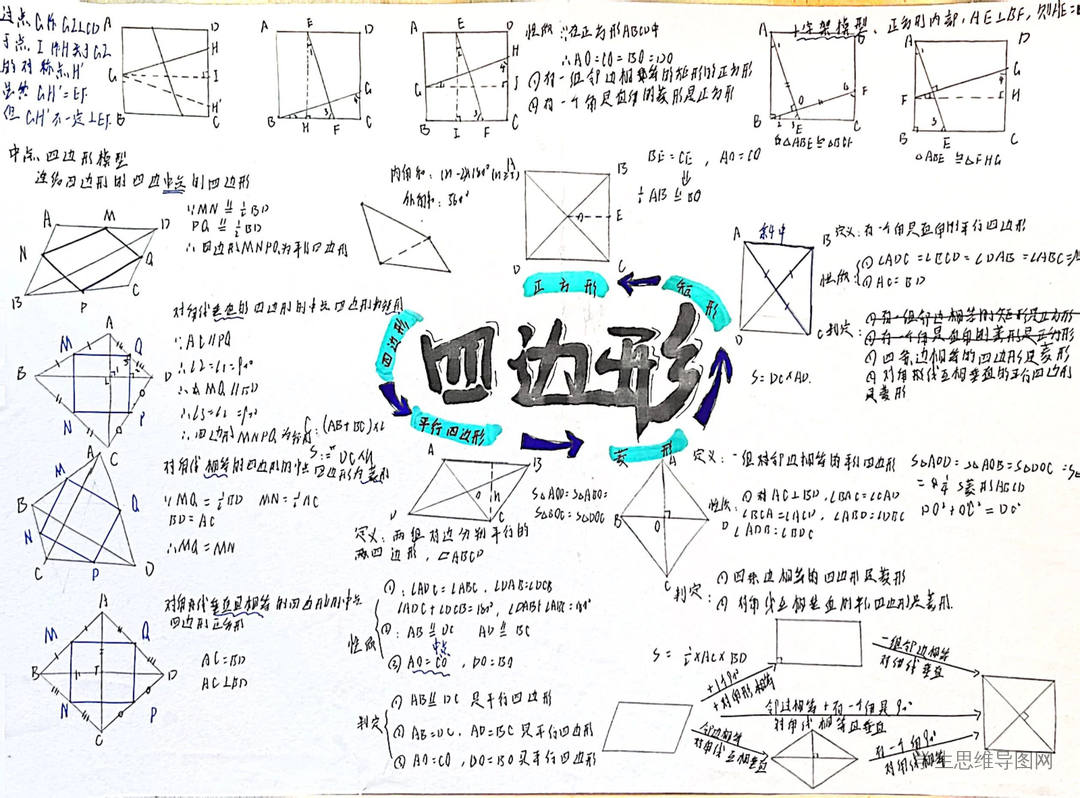 过点G作GI⊥CD
于点I作H关于GI
的对称点H'
虽然GH'=EF
但GH'不一定⊥EF
A D H I H' G B C
A E D G B H F C
A E D H G J B I F C
性质:∵在正方形ABCD中
∴AO=CO=BO=DO
①有一组邻边相等的矩形的正方形
②有一个角是直角的菱形是正方形
十字架模型,正方形内部,AE⊥BF,则AE=B
A O F B E C
∴△ABE≌△BCF
A D G F H B E C
△ABE≌△FHG
中点四边形模型
连结四边形的四边中点的四边形
A M D N Q B P C
∵MN∥½BD
PQ∥½BD
∴四边形MNPQ为平行四边形
内角和:(n-2)×180°(n≥3)
外角和:360°
B E D C
BE=CE,AO=CO
½AB∥EO
A B D C
定义:有一个角是直角的平行四边形
性质
①∠ADC=∠BCD=∠DAB=∠ABC=
②AC=BD
判定:
①有一组邻边相等的矩形是正方形
②有一个角是直角的菱形是正方形
①四条边相等的四边形是菱形
②对角线互相垂直的平行四边形
是菱形
S=DC×AD.
正方形
矩形
四边形
四边形
平行四边形
菱形
对角线垂直的四边形的中点四边形为矩形
A M Q B D N P C
∵AC∥PQ
∴∠2=∠1=90°
∴MQ∥BD
∴∠3=∠2=90°
∴四边形MNPQ为矩形
C:(AB+BC)×2
S:=DC×h
对角线相等的四边形的中点四边形为菱形
A M B Q N C P D
∵MQ=½BD MN=½AC
BD=AC
∴MQ=MN
对角线垂直且相等的四边形的中点
四边形正方形
A M Q B D N P C
AC=BD
AC⊥BD
A B O h D C
S△AOD=S△ABO=
S△BOC=S△DOC
定义:两组对边分别平行的
四边形,▱ABCD
性质
①:∠ADC=∠ABC,∠DAB=∠DCB
∠ADC+∠DCB=180°,∠DAB+∠ABC=180°
②:AB∥DC AD∥BC
中点
③AO=CO,DO=BO
判定
①AB∥DC是平行四边形
②AB=DC,AD=BC是平行四边形
③AO=CO,DO=BO是平行四边形
A B O D C
定义:一组对邻边相等的平行四边形
性质:
①对AC⊥BD,∠BAC=∠CAD
∠BCA=∠ACD,∠ABD=∠DBC
∠ADB=∠BDC
S△AOD=S△AOB=S△DOC=S
=¼S菱形ABCD
DO²+OC²=DC²
判定:
①四条边相等的四边形是菱形
②对角线互相垂直的平行四边形是菱形.
S=½×AC×BD
+1个90°
+对角形相等
一组邻边相等
对角线垂直
邻边相等+有一个角是90°
对角线相等且垂直
邻边相等
对角线互相垂直
有一个角90°
对角线相等
生思维导图网